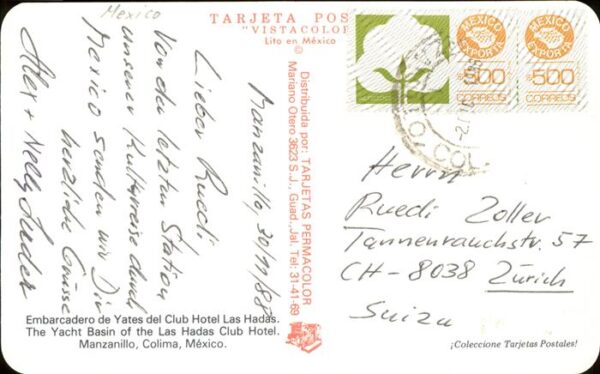 Mexico
TARJETA POS
"VISTACOLOR
Lito en México
©
Distribuida por: TARJETAS PERMACOLOR
Mariano Otero 3623 S.J., Guad., Jal. Tel: 31-41-69
Manzanillo, 30/11/88
Lieber Ruedi
Von der letzten Station
unserer Kulturreise durch
Mexico senden wir Dir
herzliche Grüsse
Alex + Nelly
Embarcadero de Yates del Club Hotel Las Hadas.
The Yacht Basin of the Las Hadas Club Hotel.
Manzanillo, Colima, México.
MEXICO
EXPORTA
$500
CORREOS
MEXICO
EXPORTA
$500
CORREOS
COL.
Herrn
Ruedi Zoller
Tannenrauchstr. 57
CH - 8038 Zürich
Suiza
¡Coleccione Tarjetas Postales!